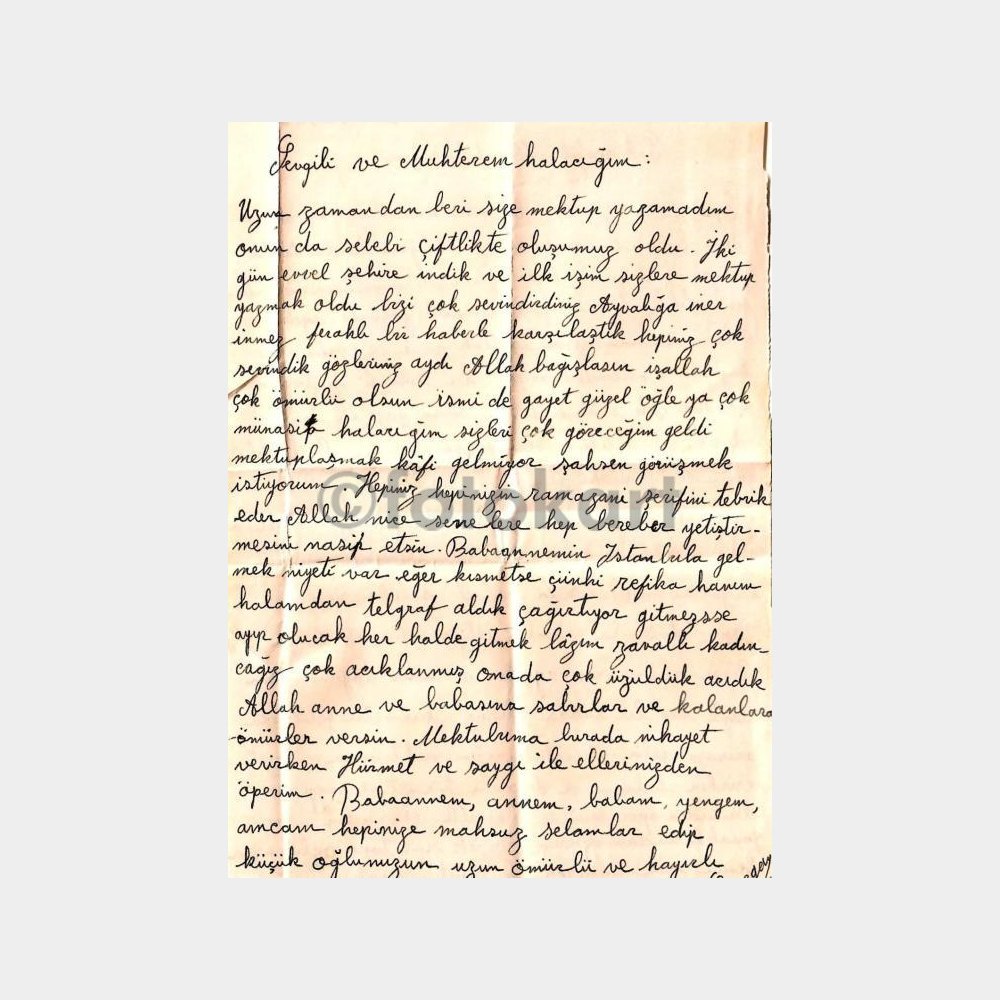 Sevgili ve Muhterem halacığım:
Uzun zamandan beri size mektup yazamadım
onun da selebi çiftlikte oluşumuz oldu. İki
gün evvel şehire indik ve ilk işim sizlere mektup
yazmak oldu bizi çok sevindirdiniz Ayvalığa iner
inmez ferahlı bir haberle karşılaştık hepiniz çok
sevindik gözleriniz aydı Allah bağışlasın işallah
çok ömürlü olsun ismi de gayet güzel öğle ya çok
münasip halacığım sizleri çok göreceğim geldi
mektuplaşmak kâfi gelmiyor şahsen görüşmek
istiyorum. Hepiniz hepinizin ramazani şerifini tebrik
eder Allah nice senelere hep bereber yetiştir-
mesini nasip etsin. Babaannemin İstanbula gel-
mek niyeti var eğer kısmetse çünki refika hanım
halamdan telgraf aldık çağırtıyor gitmezsse
ayıp olucak her halde gitmek lâzım zavallı kadın-
cağız çok acıklanmış onada çok üzüldük acıdık
Allah anne ve babasına sabırlar ve kalanlara
ömürler versin. Mektubuma burada nihayet
verirken Hürmet ve saygı ile ellerinizden
öperim. Babaannem, annem, babam, yengem,
amcam hepinize mahsuz selamlar edip
küçük oğlunuzun uzun ömürlü ve hayırlı
©fotokart